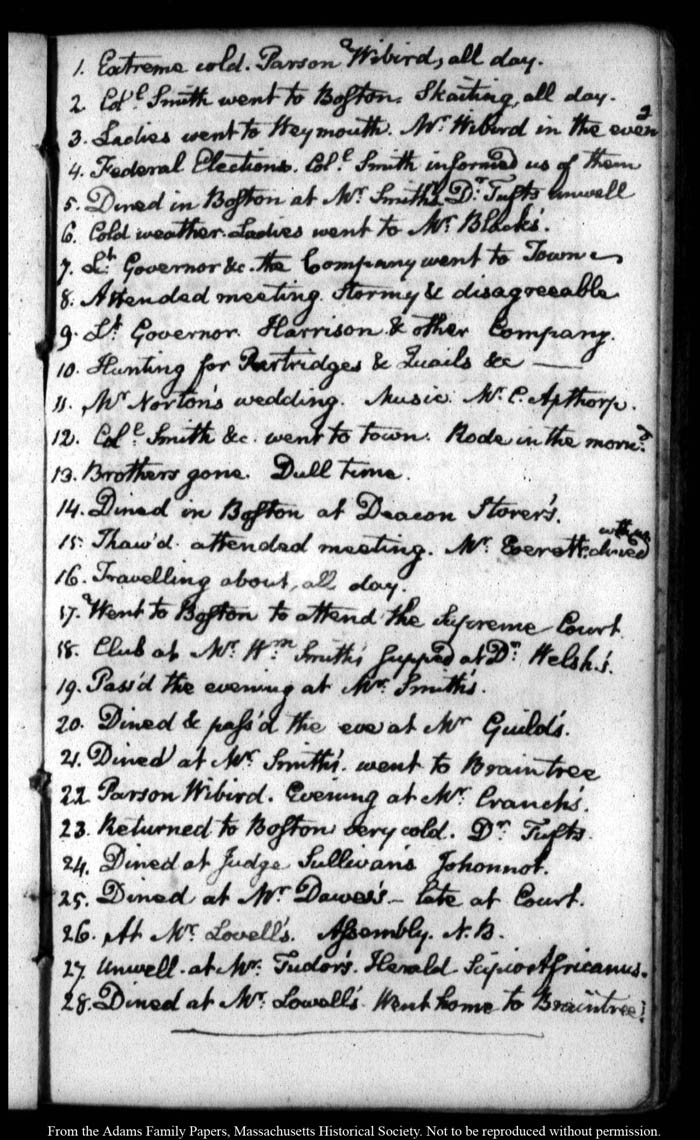 1. Extreme cold. Parson Wibird, all day.
2 Col.l Smith went to Boston. Skaiting, all day.
3. Ladies went to Weymouth. Mr. Wibird in the even
4. Federal Elections. Col.l Smith informed us of them
5. Dined in Boston at Mr. Smith's Dr. Tufts unwell
6. Cold weather. Ladies went to Mr. Black's.
7. Lt. Governor &c. the Company went to Town
8. Attended meeting. Stormy & disagreeable
9. Lt. Governor. Harrison & other Company.
10. Hunting for Partridges & Quails &c —
11. Mr Norton's wedding. Music. Mr. C. Apthorp.
12. Col.l Smith &c. went to town. Rode in the morng.
13. Brothers gone. Dull time.
14. Dined in Boston at Deacon Storer's.
15. Thaw'd. attended meeting. Mr. Everett dined with us
16. Travelling about, all day.
17. Went to Boston to attend the Supreme Court
18. Club at Mr. Wm. Smith's supped at Dr. Welsh's.
19. Pass'd the evening at Mr. Smith's.
20. Dined & pass'd the eve at Mr Guild's.
21. Dined at Mr. Smith's. went to Braintree
22. Parson Wibird. Evening at Mr. Cranch's.
23. Returned to Boston very cold. Dr. Tufts.
24. Dined at Judge Sullivan's Johonnot.
25. Dined at Mr Dawes's. – late at Court.
26. At Mr. Lovell's. Assembly. N.B.
27 Unwell. at Mr. Tudor's. Herald Scipio Africanus.
28. Dined at Mr. Lowell's. Went home to Braintree.
From the Adams Family Papers, Massachusetts Historical Society. Not to be reproduced without permission.